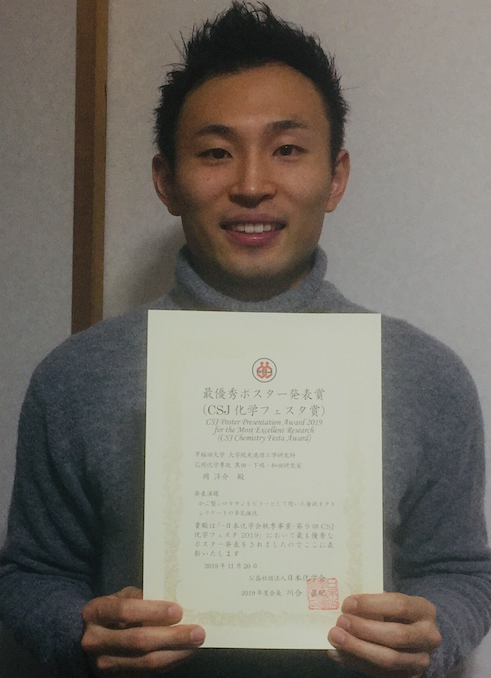 最優秀ポスター発表賞
(CSJ 化学フェスタ賞)
CSJ Poster Presentation Award 2019
for the Most Excellent Research
(CSJ Chemistry Festa Award)
早稲田大学 大学院先進理工学研究科
応用化学専攻 黒田・下嶋・和田研究室
岡 洋介 殿
発表演題
かご型シロキサンをピラーとして用いた層状
貴殿は「-日本化学会秋季事業-第9回CSJ
化学フェスタ2019」において最も優秀な
ポスター発表をされましたのでここに表
彰いたします
2019年11月20日
公益社団法人日本化学会
2019年度会長 川合 眞紀